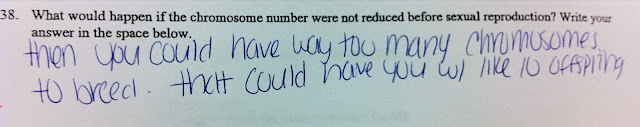 38. What would happen if the chromosome number were not reduced before sexual reproduction? Write your
answer in the space below.
then you could have way too many chromosomes
to breed. that could have you w/ like 10 offspring